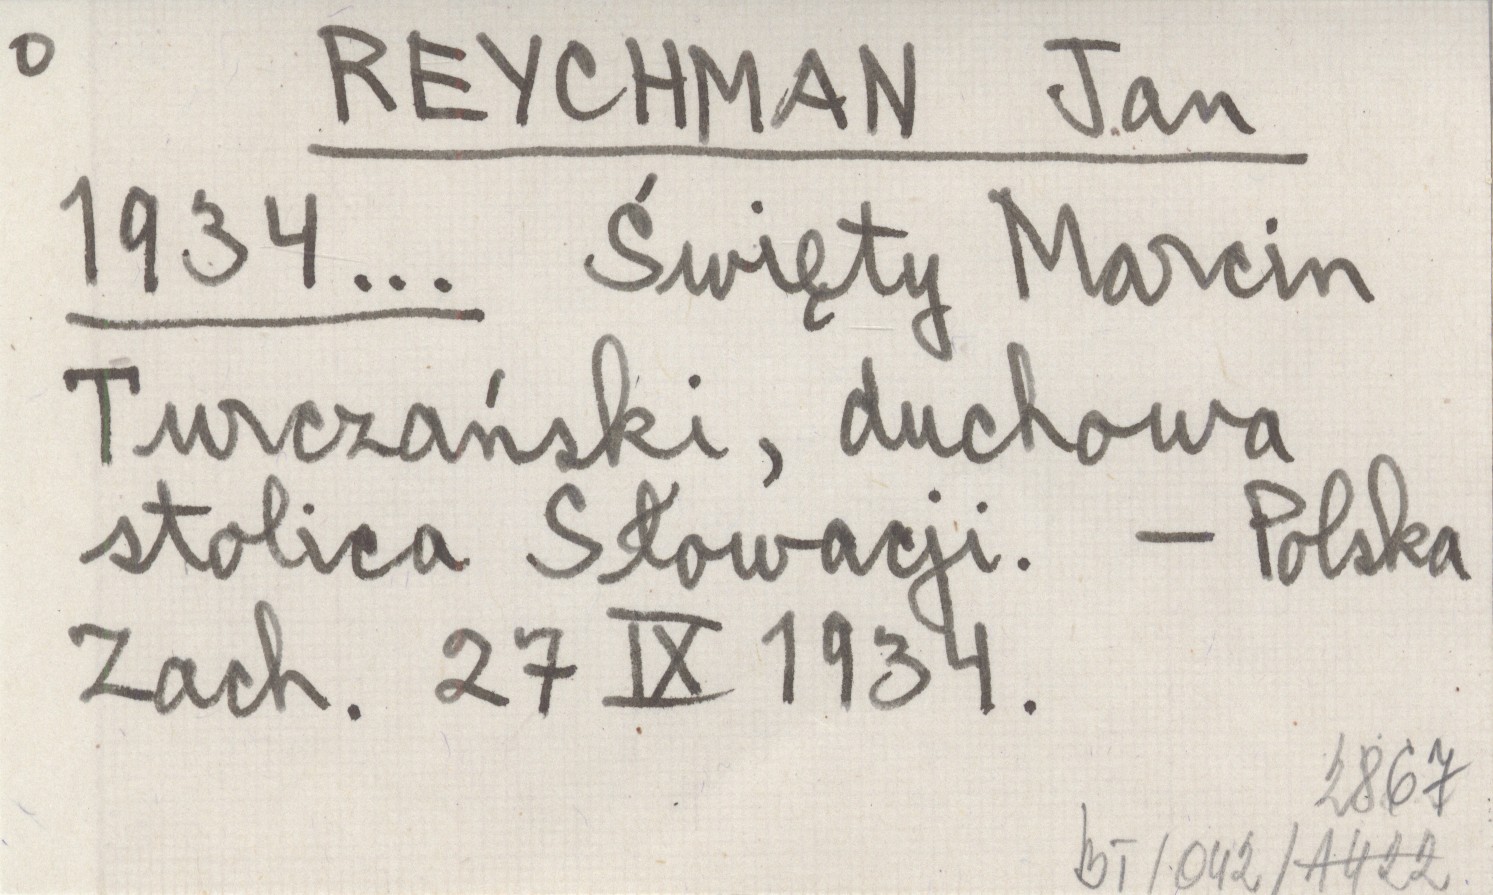 o REYCHMAN Jan
1934... Święty Marcin
Turczański, duchowa
stolica Słowacji. — Polska
Zach. 27 IX 1934.
2867
BT/042/A422